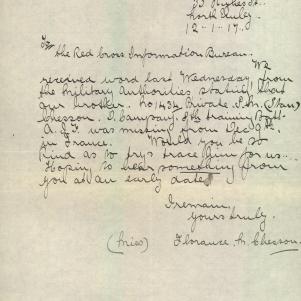 St.
North Unley
12-1-17.
The Red Cross Information Bureau.
We
received word last Wednesday, from
the Military Authorities stating that
our brother. No 1434 Private S. M. (Stan)
Chesson. D. Company. 8th training Batt.
A.I.F. was missing from Dec 9th
in France. Would you be so
kind as to try & trace him for us.
Hoping to hear something from
you at an early date.
I remain,
Yours truly.
(Miss) Florance. M. Chesson.